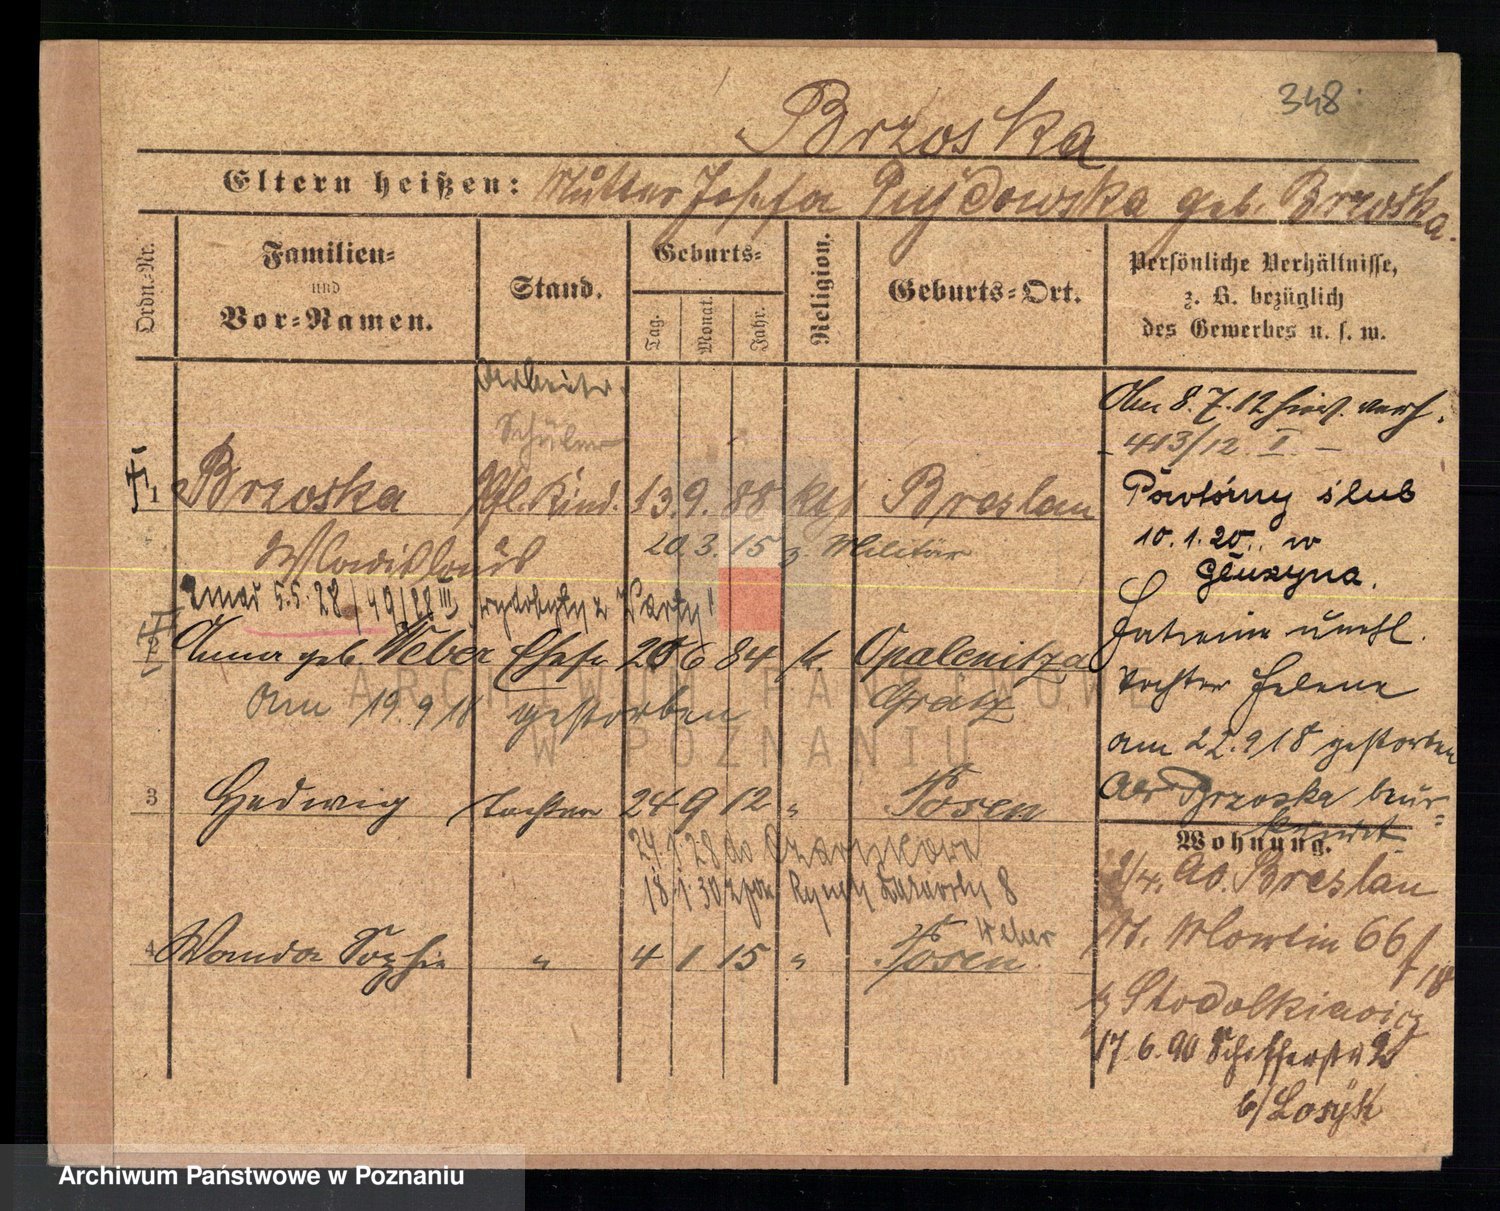 348
Brzoska
Eltern heißen: Mutter Josefa geb. Brzoska.
Ordn.-Nr.
Familien-
und
Vor-Namen.
Stand.
Geburts-
Tag.
Monat.
Jahr.
Religion.
Geburts-Ort.
Persönliche Verhältnisse,
z. B. bezüglich
des Gewerbes u. s. w.
Arbeiter.
Schüler
1 Brzoska Pfl. Kind. 13. 9. 88 kth Breslau
Wladislaus
20. 3. 15 z. Militär
zmarł 5.5.28/49/28 III wydobyty z Warty
2 Anna geb. Weber Ehefr 26 6 84 k. Opalenitza
Grätz
am 19. 9 18 gestorben
3 Hedwig Tochter 24 9 12 " Posen
24. 1 28 do Czarnkowa
18. 1. 30 Rynek Łazarski 8
Weber
4 Wanda Sophie " 4 1 15 " Posen
Am 8. 7. 12 hier verh.
- 413/12 I -
Powtórny ślub
10. 1. 20. w
Głuszyna.
unehl.
Tochter Helene
am 22. 9 18 gestorben
Als Brzoska beur-
kundet
Wohnung.
2/4. Ab. Breslau
St. Martin 66
b/ Stodolkiewicz
17. 6. 90
b/
ARCHIWUM PAŃSTWOWE
W POZNANIU
Archiwum Państwowe w Poznaniu